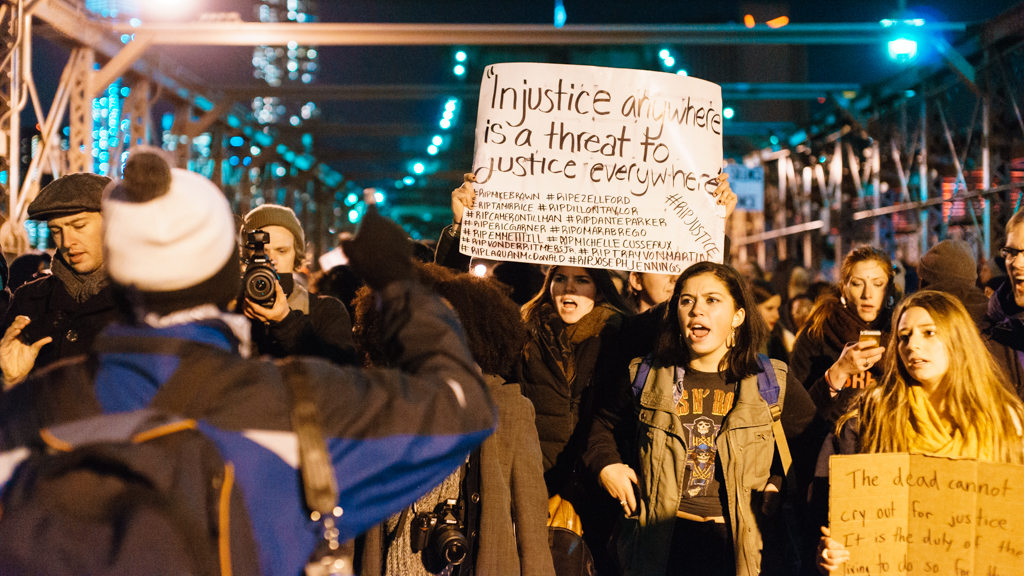 "Injustice anywhere
is a threat to
justice everywhere"
#RIPMIKEBROWN #RIPEZELLFORD
#RIPTAMIRRICE #RIPDILLONTAYLOR
#RIPCAMERONTILLMAN #RIPDANTEPARKER
#RIPERICGARNER #RIPOMARABREGO
#RIPEMMETTTILL #RIPMICHELLECUSSEAUX
#RIPVONDERRITMYERSJR #RIPTRAYVONMARTIN
#RIPLAQUANMcDONALD #RIPJOSEPHJENNINGS
#RIPJUSTICE
NS N' RO
The dead cannot
cry out for justice
It is the duty of the
living to do so for